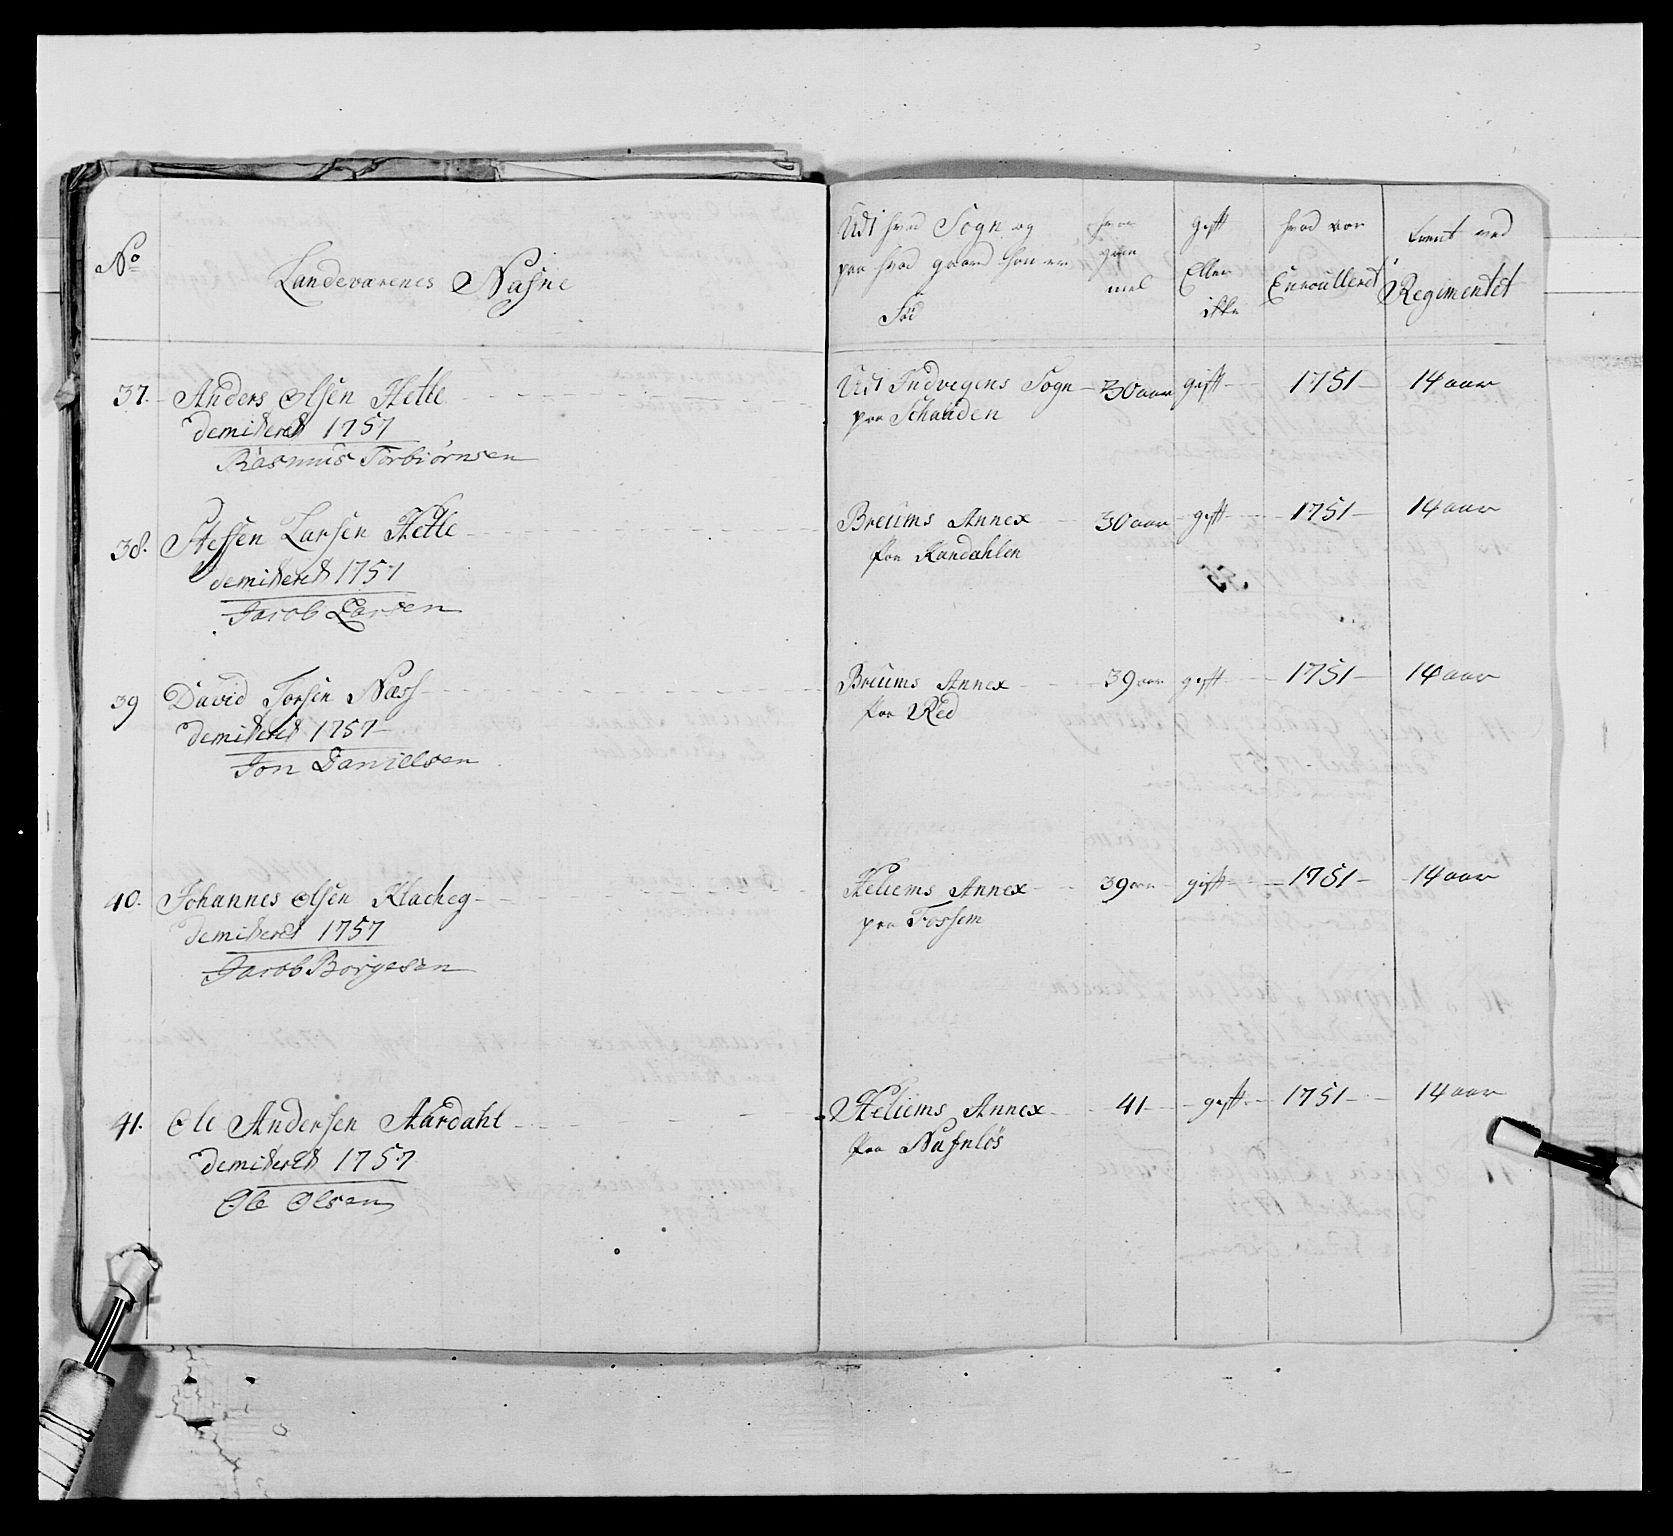 No
Landevarenes Nafne
Udi hvad Sogn og
paa hvad gaard han er
Fød
hvor
gam
mel
gift
Eller
ikke
hvad aar
Enroulleret
tient ved
Regimentet
37. Anders Olsen Hetle Udi Indvigens Sogn 30 aar gift 1751 14 aar
demiteret 1757 paa Schauden
Rasmus Torbiörnsen
38. Steffen Larsen Hetle Breums Annex 30 aar gift 1751 14 aar
demiteret 1757 paa Randahlen
Jacob Larsen
39 David Torsen Næss Breums Annex 39 aar gift 1751 14 aar
demiteret 1757 paa Red
Jon Danielsen
40. Johannes Olsen Klacheg Heliems Annex 39 aar gift 1751 14 aar
demiteret 1757 paa Fossem
Jacob Borgesen
41. Ole Andersen Aardahl Heliems Annex 41 gift 1751 14 aar
demiteret 1757 paa Nafnløs
Ole Olsen